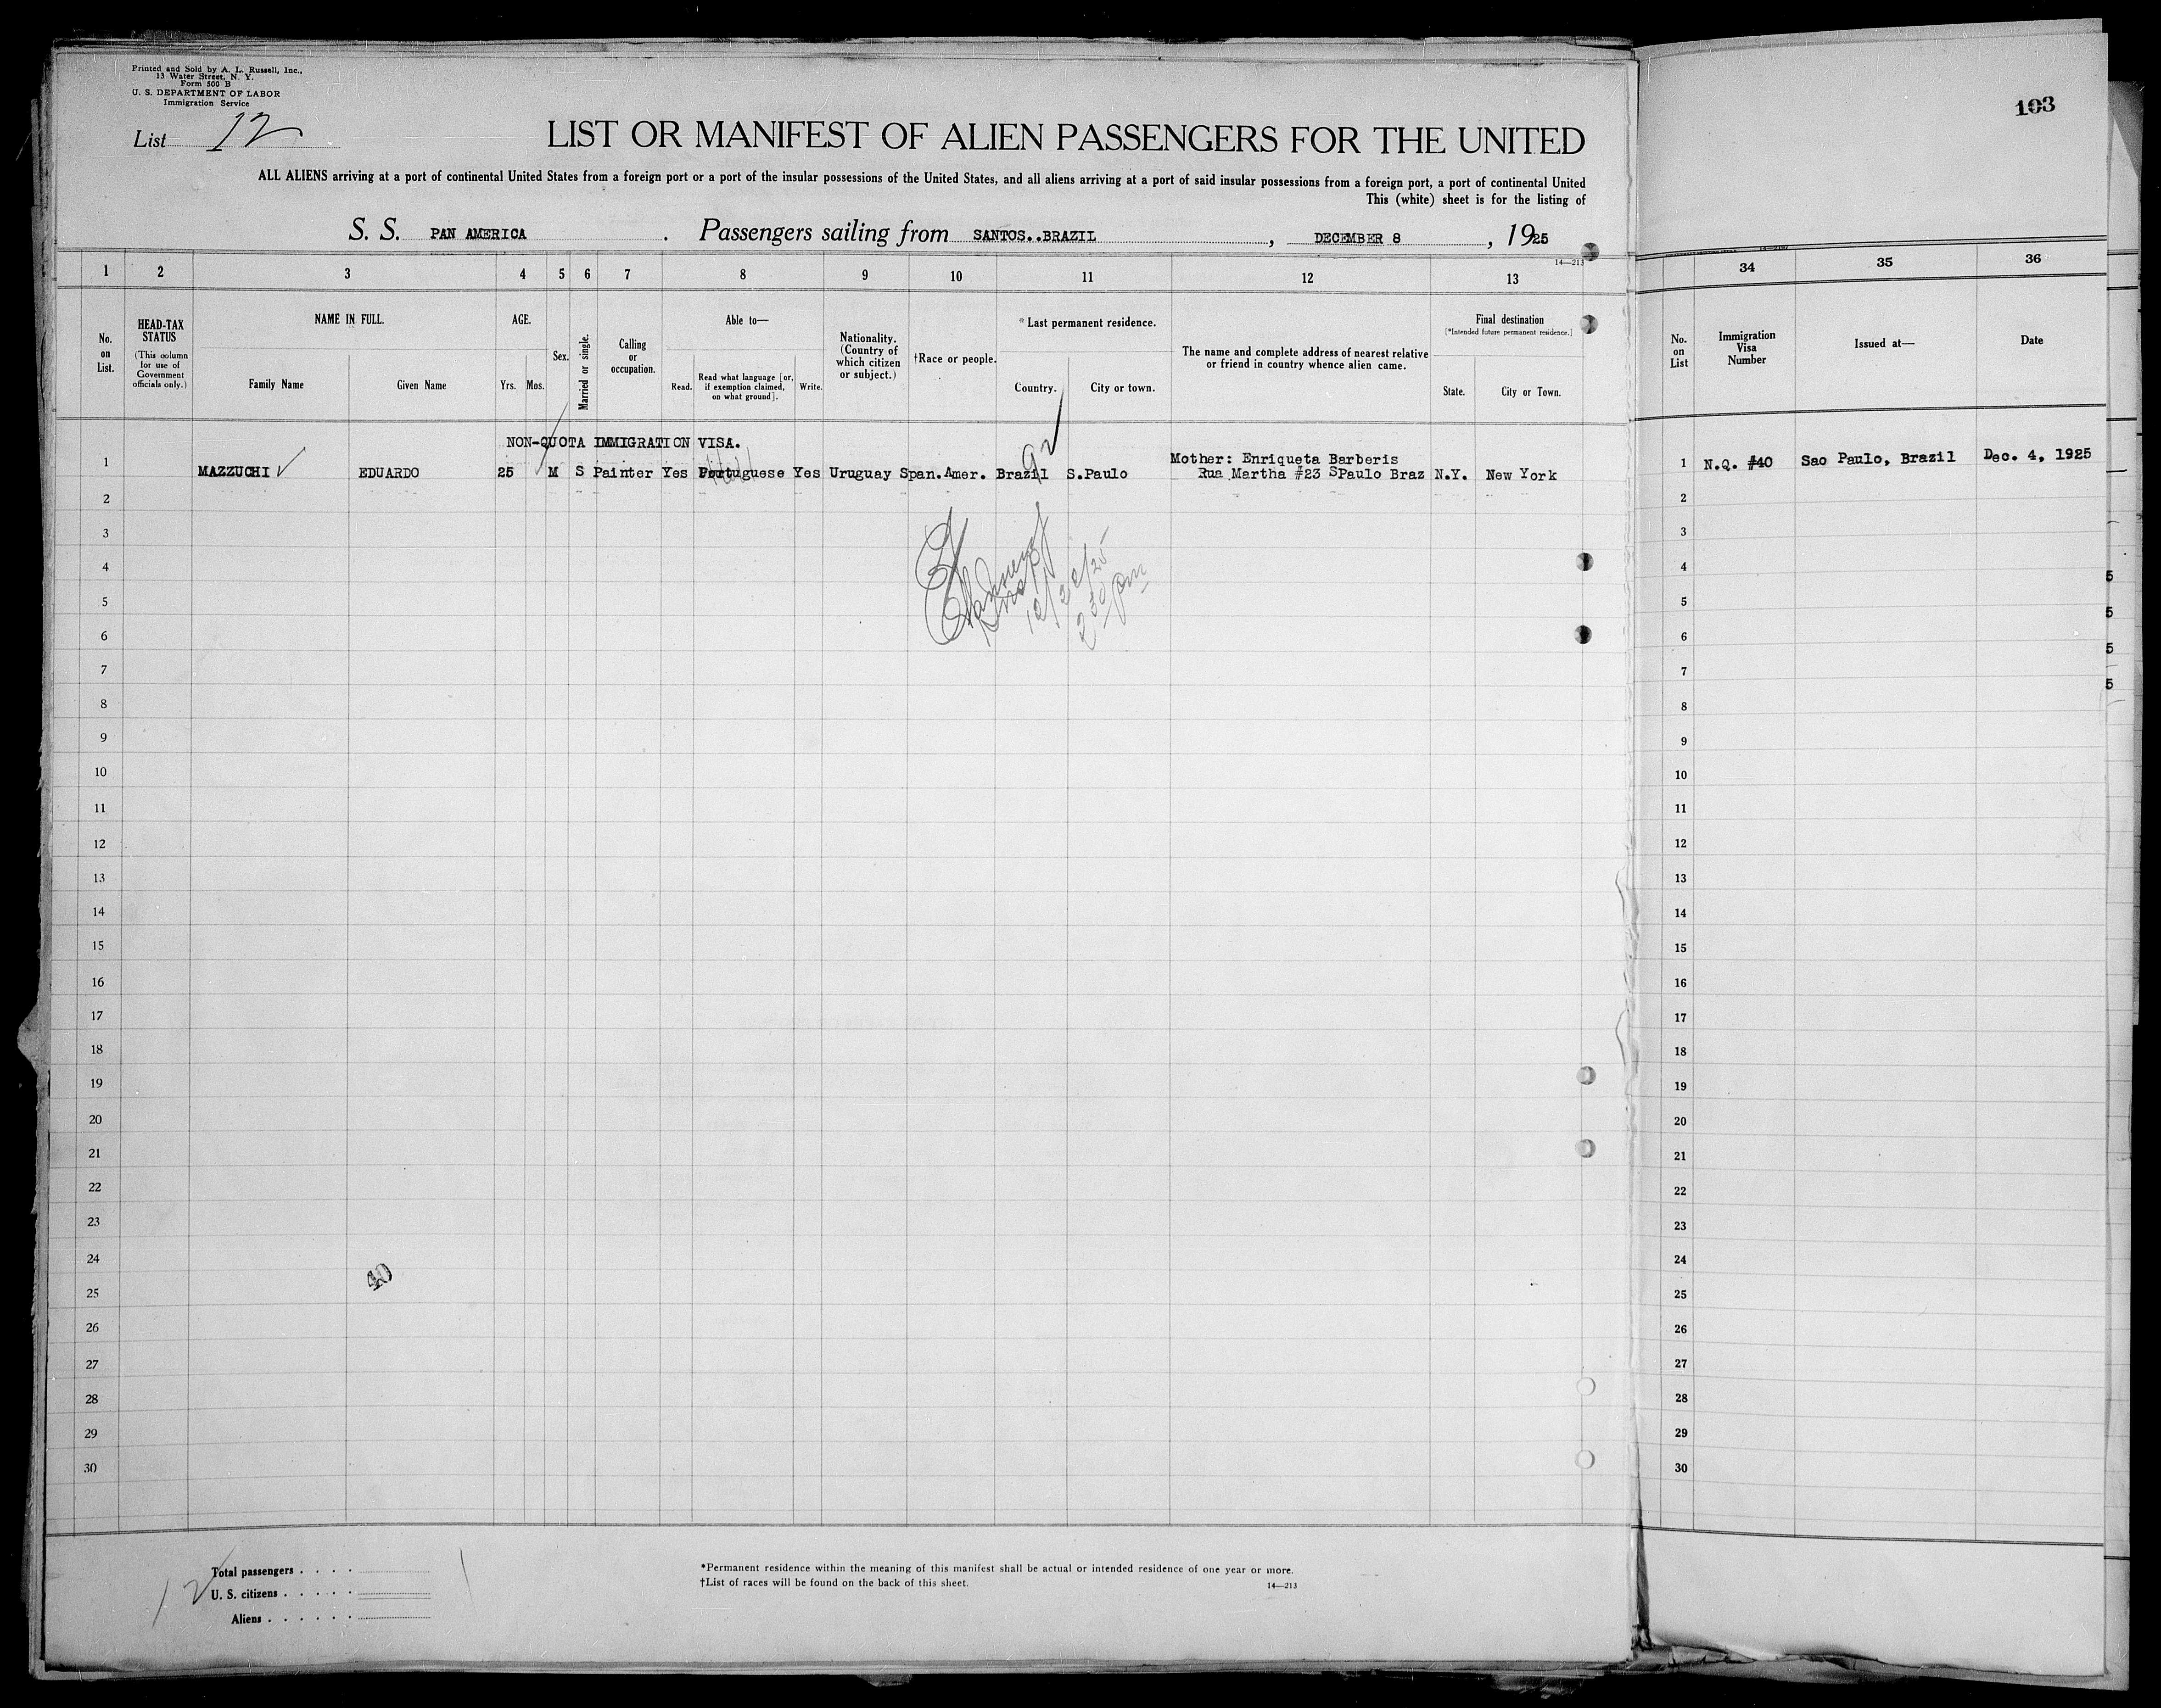 Printed and Sold by A. L. Russell, Inc.,
13 Water Street, N. Y.
Form 500 B
U. S. DEPARTMENT OF LABOR
Immigration Service
103
List 12
LIST OR MANIFEST OF ALIEN PASSENGERS FOR THE UNITED
ALL ALIENS arriving at a port of continental United States from a foreign port or a port of the insular possessions of the United States, and all aliens arriving at a port of said insular possessions from a foreign port, a port of continental United
This (white) sheet is for the listing of
S. S. PAN AMERICA . Passengers sailing from SANTOS..BRAZIL , DECEMBER 8 , 1925
14—213
1 2 3 4 5 6 7 8 9 10 11 12 13 34 35 36
No. on List.
HEAD-TAX STATUS
(This column for use of Government officials only.)
NAME IN FULL.
Family Name
Given Name
AGE.
Yrs. Mos.
Sex.
Married or single.
Calling or occupation.
Able to—
Read.
Read what language [or, if exemption claimed, on what ground].
Write.
Nationality. (Country of which citizen or subject.)
†Race or people.
*Last permanent residence.
Country.
City or town.
The name and complete address of nearest relative or friend in country whence alien came.
Final destination
[*Intended future permanent residence.]
State.
City or Town.
No. on List
Immigration Visa Number
Issued at—
Date
NON-QUOTA IMMIGRATION VISA.
Mother: Enriqueta Barberis
1 MAZZUCHI EDUARDO 25 M S Painter Yes Portuguese Yes Uruguay Span.Amer. Brazil S.Paulo Rua Martha #23 SPaulo Braz N.Y. New York 1 N.Q. #40 Sao Paulo, Brazil Dec. 4, 1925
2 2
3 3
4 4
5 5
6 6
7 7
8 8
9 9
10 10
11 11
12 12
13 13
14 14
15 15
16 16
17 17
18 18
19 19
20 20
21 21
22 22
23 23
24 24
40
25 25
26 26
27 27
28 28
29 29
30 30
12
Total passengers . . . .
U. S. citizens . . . . .
Aliens . . . . . .
*Permanent residence within the meaning of this manifest shall be actual or intended residence of one year or more.
†List of races will be found on the back of this sheet.
14—213